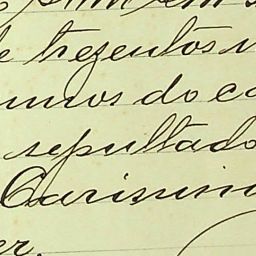 e trezentos
umos do c
sepultado
Carissimi
er.